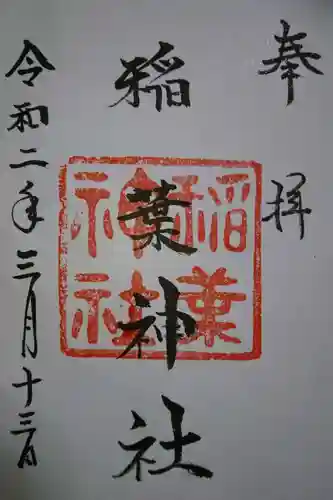 奉拝
稲葉神社
稲葉神社
令和二年三月十三日